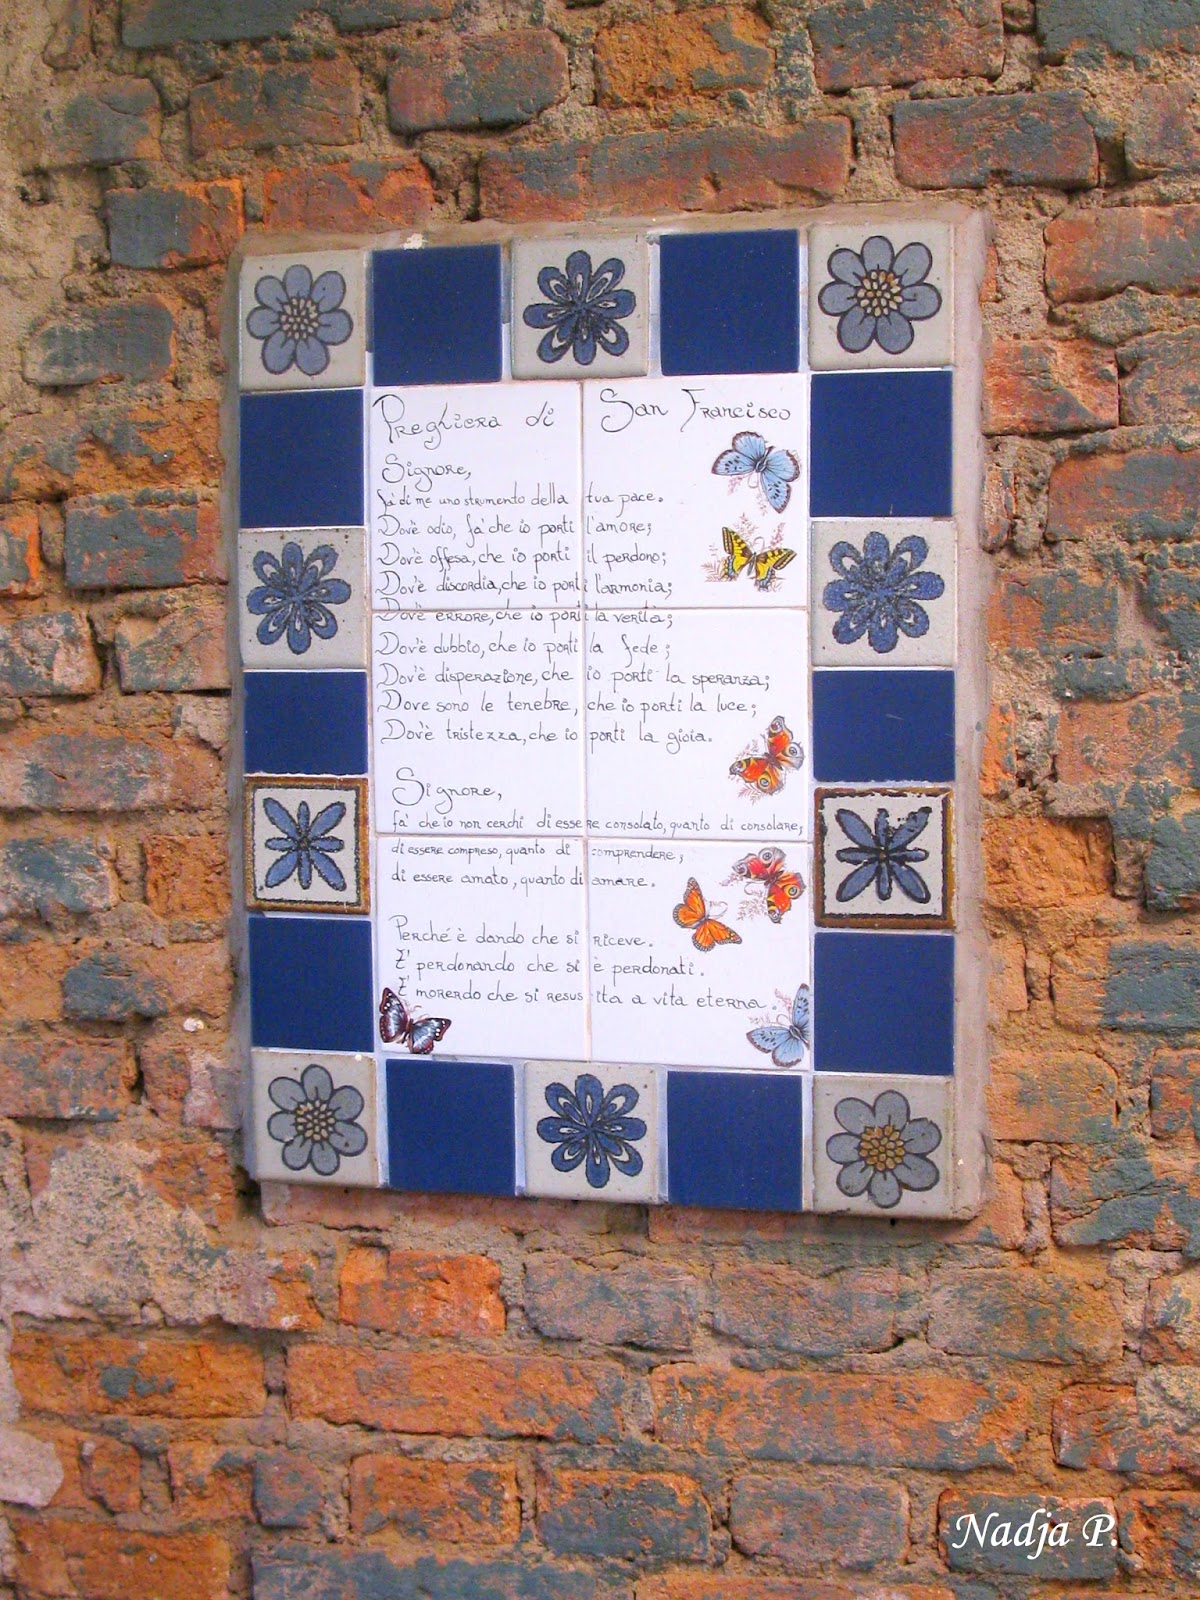 Preghiera di San Francisco
Signore,
fa' di me uno strumento della tua pace.
Dov'è odio, fa' che io porti l'amore;
Dov'è offesa, che io porti il perdono;
Dov'è discordia, che io porti l'armonia;
Dov'è errore, che io porti la verità;
Dov'è dubbio, che io porti la fede;
Dov'è disperazione, che io porti la speranza;
Dove sono le tenebre, che io porti la luce;
Dov'è tristezza, che io porti la gioia.
Signore,
fa' che io non cerchi di essere consolato, quanto di consolare;
di essere compreso, quanto di comprendere;
di essere amato, quanto di amare.
Perché è dando che si riceve.
E' perdonando che si è perdonati.
E' morendo che si resuscita a vita eterna.
Nadja P.